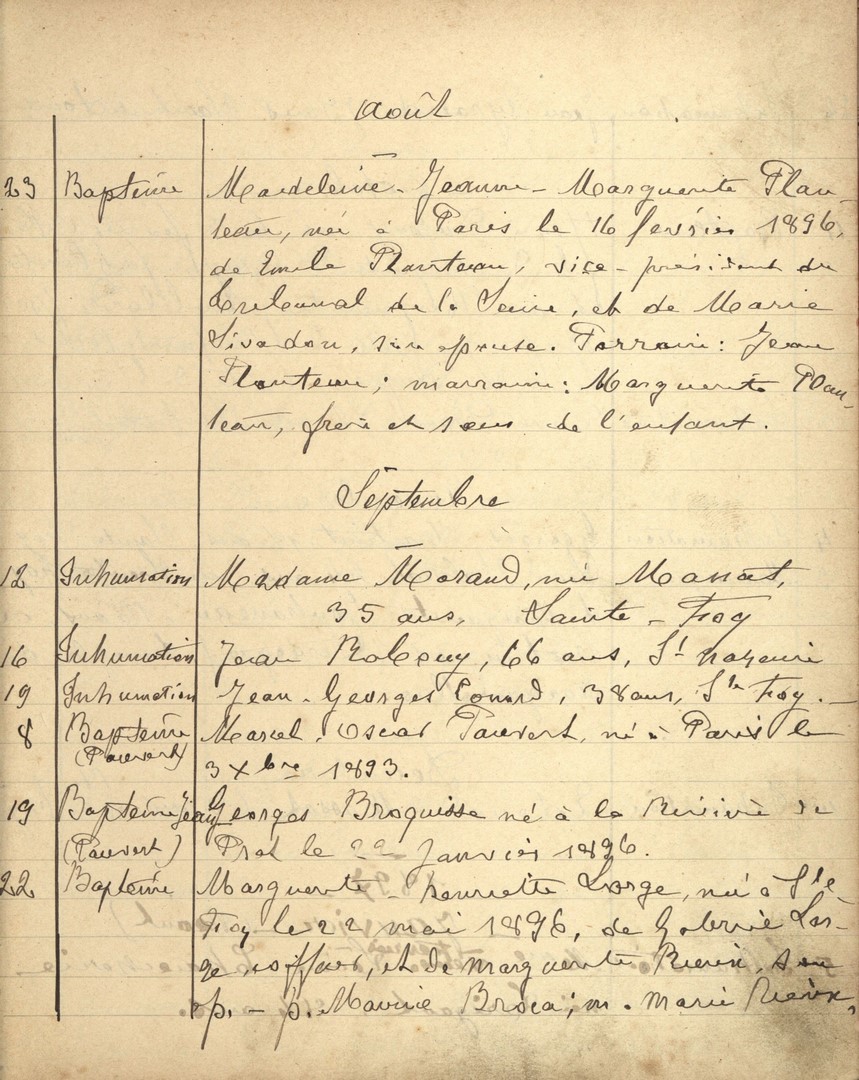 Août
23 Baptême Madeleine-Jeanne-Marguerite Plan-
teau, née à Paris le 16 février 1896,
de Emile Planteau, vice-président du
tribunal de la Seine, et de Marie
Sivadon, son épouse. Parrain: Jean
Planteau; marraine: Marguerite Plan-
teau, frère et sœur de l'enfant.
Septembre
12 Inhumation Madame Morand, née
35 ans, Sainte-Foy
16 Inhumation Jean 66 ans, St Nazaire
19 Inhumation Jean-Georges 38 ans, Ste Foy.
8 Baptême Marcel, Oscar Pauvert, né à Paris le
(Pauvert) 3 Xbre 1893.
19 Baptême Jean Georges Broquisse né à la Rivière de
(Pauvert) Prat le 22 Janvier 1896.
22 Baptême Marguerite-Henriette Lorge, née à Ste
Foy le 22 mai 1896, de Gabriel Lor-
ge, coiffeur, et de Marguerite Rieux, son
ép. - p. Maurice Broca; m. Marie Rieux,